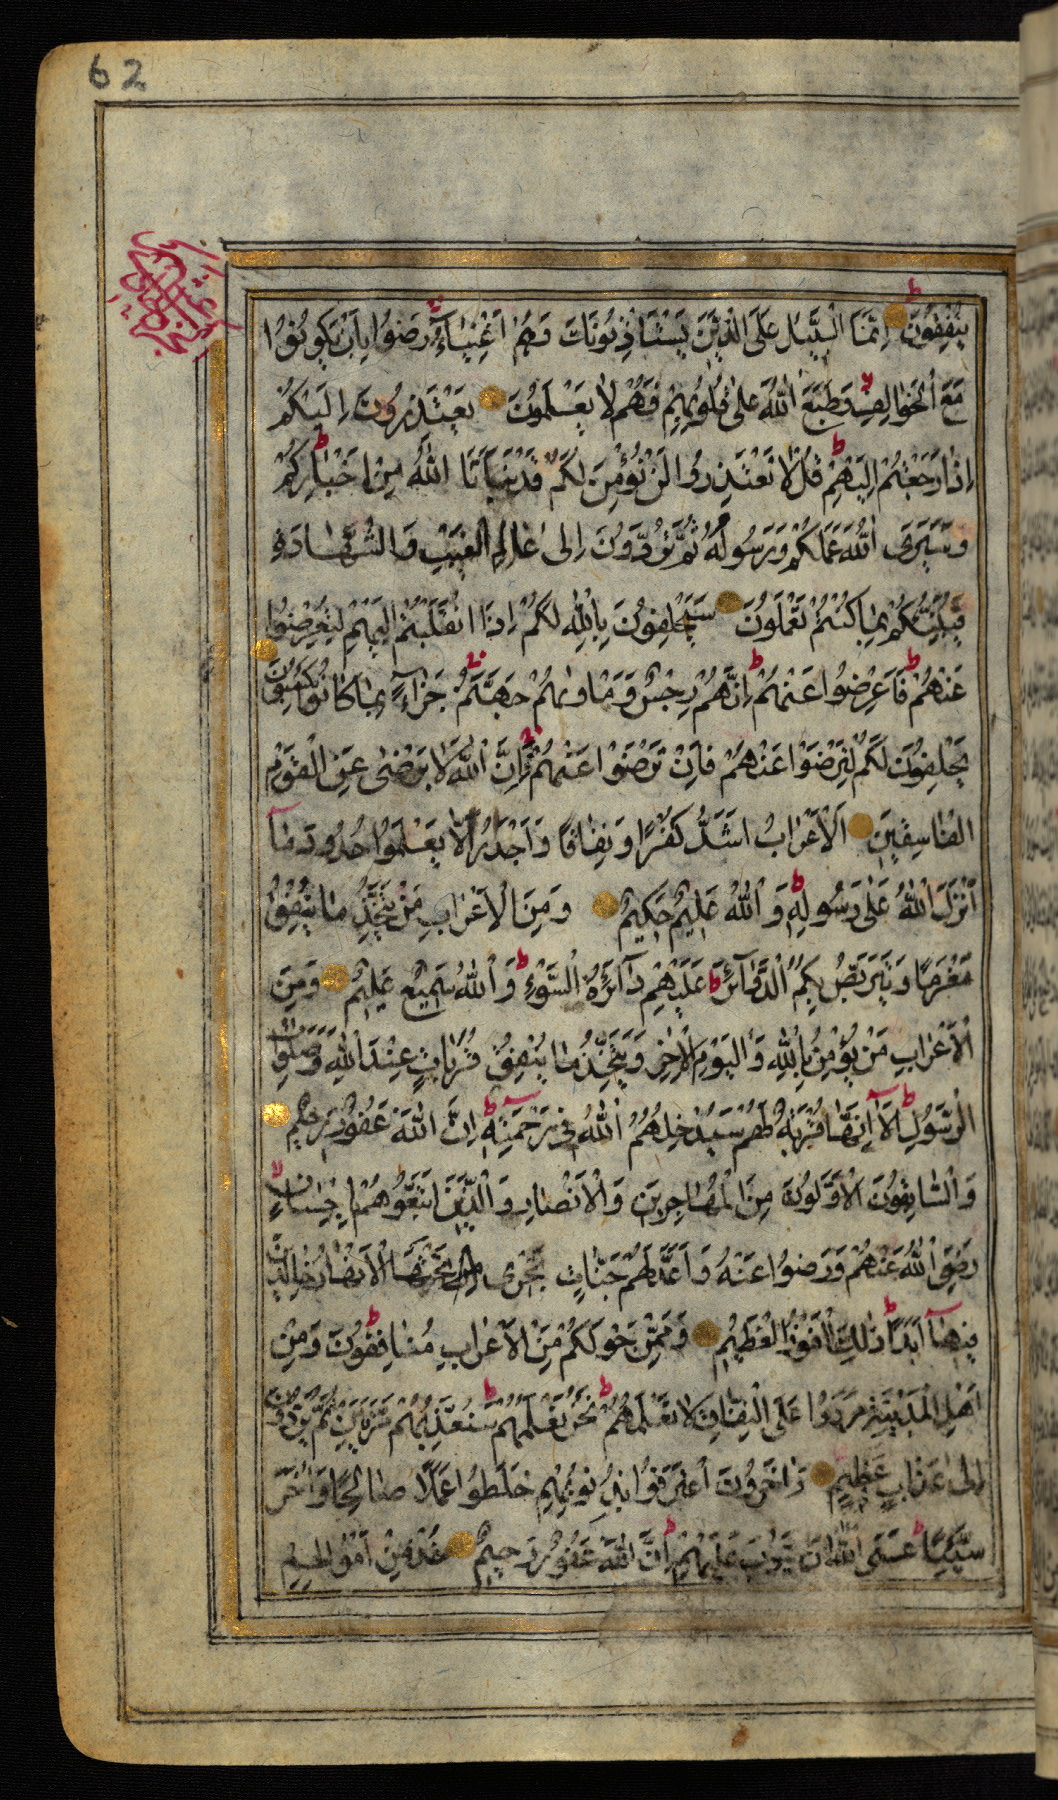 62
يُنْفِقُونَ اِنَّمَا السَّبٖيلُ عَلَى الَّذٖينَ يَسْتَاْذِنُونَكَ وَهُمْ اَغْنِيَاءُ رَضُوا بِاَنْ يَكُونُوا
مَعَ الْخَوَالِفِ وَطَبَعَ اللّٰهُ عَلٰى قُلُوبِهِمْ فَهُمْ لَا يَعْلَمُونَ يَعْتَذِرُونَ اِلَيْكُمْ
اِذَا رَجَعْتُمْ اِلَيْهِمْ قُلْ لَا تَعْتَذِرُوا لَنْ نُؤْمِنَ لَكُمْ قَدْ نَبَّاَنَا اللّٰهُ مِنْ اَخْبَارِكُمْ
وَسَيَرَى اللّٰهُ عَمَلَكُمْ وَرَسُولُهُ ثُمَّ تُرَدُّونَ اِلٰى عَالِمِ الْغَيْبِ وَالشَّهَادَةِ
فَيُنَبِّئُكُمْ بِمَا كُنْتُمْ تَعْمَلُونَ سَيَحْلِفُونَ بِاللّٰهِ لَكُمْ اِذَا انْقَلَبْتُمْ اِلَيْهِمْ لِتُعْرِضُوا
عَنْهُمْ فَاَعْرِضُوا عَنْهُمْ اِنَّهُمْ رِجْسٌ وَمَاْوٰيهُمْ جَهَنَّمُ جَزَاءً بِمَا كَانُوا يَكْسِبُونَ
يَحْلِفُونَ لَكُمْ لِتَرْضَوْا عَنْهُمْ فَاِنْ تَرْضَوْا عَنْهُمْ فَاِنَّ اللّٰهَ لَا يَرْضٰى عَنِ الْقَوْمِ
الْفَاسِقٖينَ اَلْاَعْرَابُ اَشَدُّ كُفْرًا وَنِفَاقًا وَاَجْدَرُ اَلَّا يَعْلَمُوا حُدُودَ مَا
اَنْزَلَ اللّٰهُ عَلٰى رَسُولِهِ وَاللّٰهُ عَلٖيمٌ حَكٖيمٌ وَمِنَ الْاَعْرَابِ مَنْ يَتَّخِذُ مَا يُنْفِقُ
مَغْرَمًا وَيَتَرَبَّصُ بِكُمُ الدَّوَائِرَ عَلَيْهِمْ دَائِرَةُ السَّوْءِ وَاللّٰهُ سَمٖيعٌ عَلٖيمٌ وَمِنَ
الْاَعْرَابِ مَنْ يُؤْمِنُ بِاللّٰهِ وَالْيَوْمِ الْاٰخِرِ وَيَتَّخِذُ مَا يُنْفِقُ قُرُبَاتٍ عِنْدَ اللّٰهِ وَصَلَوَاتِ
الرَّسُولِ اَلَا اِنَّهَا قُرْبَةٌ لَهُمْ سَيُدْخِلُهُمُ اللّٰهُ فٖى رَحْمَتِهِ اِنَّ اللّٰهَ غَفُورٌ رَحٖيمٌ
وَالسَّابِقُونَ الْاَوَّلُونَ مِنَ الْمُهَاجِرٖينَ وَالْاَنْصَارِ وَالَّذٖينَ اتَّبَعُوهُمْ بِاِحْسَانٍ
رَضِىَ اللّٰهُ عَنْهُمْ وَرَضُوا عَنْهُ وَاَعَدَّ لَهُمْ جَنَّاتٍ تَجْرٖى تَحْتَهَا الْاَنْهَارُ خَالِدٖينَ
فٖيهَا اَبَدًا ذٰلِكَ الْفَوْزُ الْعَظٖيمُ وَمِمَّنْ حَوْلَكُمْ مِنَ الْاَعْرَابِ مُنَافِقُونَ وَمِنْ
اَهْلِ الْمَدٖينَةِ مَرَدُوا عَلَى النِّفَاقِ لَا تَعْلَمُهُمْ نَحْنُ نَعْلَمُهُمْ سَنُعَذِّبُهُمْ مَرَّتَيْنِ ثُمَّ يُرَدُّونَ
اِلٰى عَذَابٍ عَظٖيمٍ وَاٰخَرُونَ اعْتَرَفُوا بِذُنُوبِهِمْ خَلَطُوا عَمَلًا صَالِحًا وَاٰخَرَ
سَيِّئًا عَسَى اللّٰهُ اَنْ يَتُوبَ عَلَيْهِمْ اِنَّ اللّٰهَ غَفُورٌ رَحٖيمٌ خُذْ مِنْ اَمْوَالِهِمْ